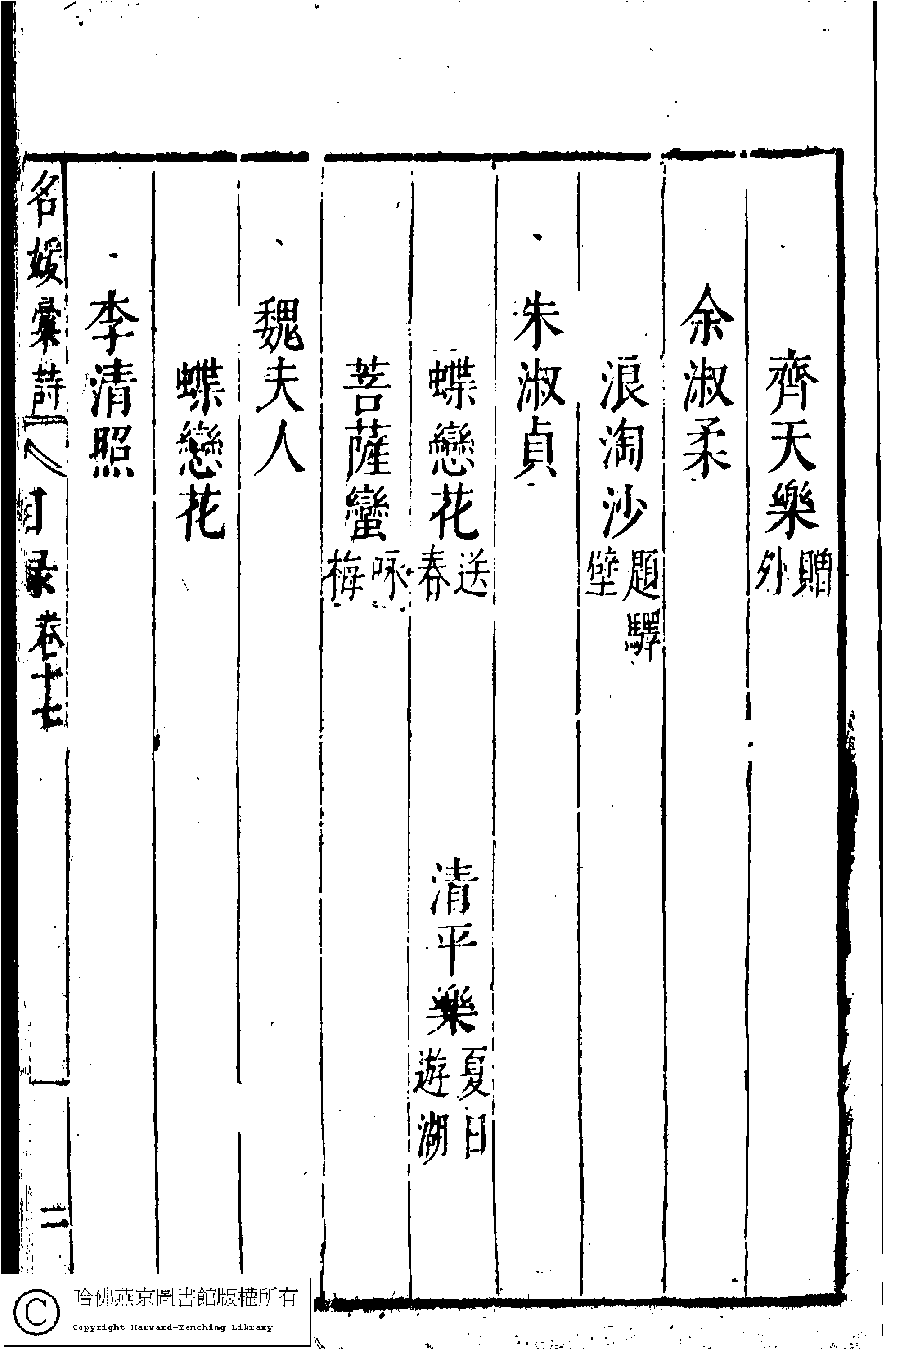 齊天樂贈外
余淑柔
浪淘沙題驛壁
朱淑貞
蝶戀花送春 清平樂夏日遊湖
菩薩蠻咏梅
魏夫人
蝶戀花
李清照
名媛彙詩 目录卷十七 二
哈佛燕京圖書館版權所有
Copyright Harvard-Yenching Library